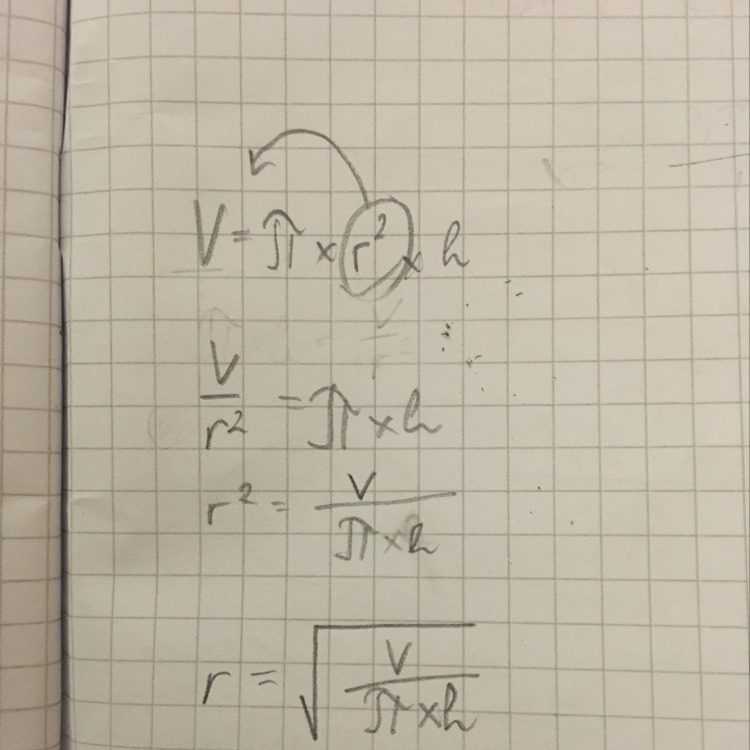 V = π × r² × h
V/r² = π × h
r² = V/(π × h)
r = √(V/(π × h))